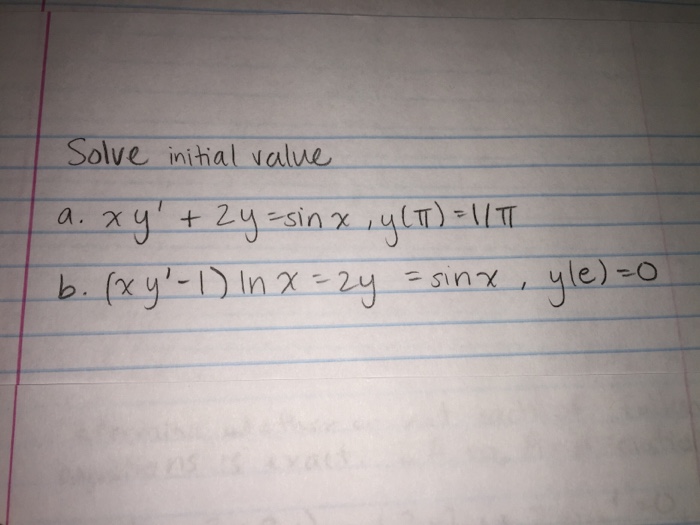 Solve initial value
a. xy' + 2y = sin x, y(π) = 1/π
b. (xy'-1) ln x = 2y = sinx, y(e) = 0